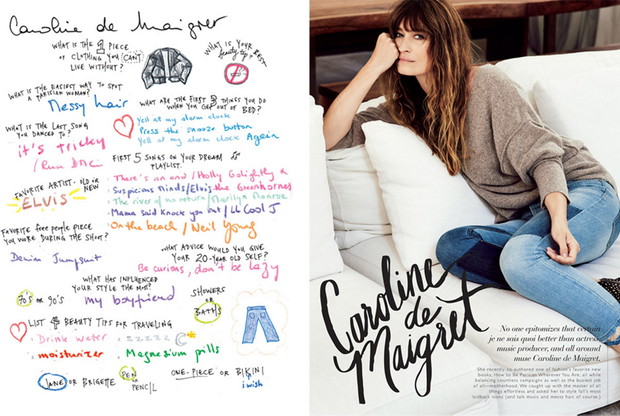 Caroline de Maigret
WHAT IS THE 1 PIECE
OF CLOTHING YOU CAN'T
LIVE WITHOUT?
WHAT IS YOUR BEST
beauty tip?
WHAT IS THE EASIEST WAY TO SPOT
A PARISIAN WOMAN?
Messy hair
WHAT ARE THE FIRST 3 THINGS YOU DO
WHEN YOU GET OUT OF BED?
Yell at my alarm clock
Press the snooze button
Yell at my alarm clock Again
WHAT IS THE LAST SONG
YOU DANCED TO?
it's tricky
/Run DMC
FIRST 5 SONGS ON YOUR DREAM
PLAYLIST.
There's an end / Holly Golightly &
the Greenhornes
Suspicious Minds / Elvis
The river of no return / Marilyn Monroe
Mama said knock you out / LL Cool J
On the beach / Neil Young
FAVORITE ARTIST - OLD or NEW
ELVIS
FAVORITE FREE PEOPLE PIECE
YOU WORE DURING THE SHOOT?
Denim Jumpsuit
WHAT ADVICE WOULD YOU GIVE
YOUR 20-YEAR OLD SELF?
Be curious, don't be lazy
WHAT HAS INFLUENCED
YOUR STYLE THE MOST?
my boyfriend
70'S OR 90'S
SHOWERS
OR
BATHS
LIST 4 BEAUTY TIPS FOR TRAVELING
Drink water
zzzzz
moisturizer
Magnesium pills
JANE OR BRIGETTE
PEN OR
PENCIL
ONE-PIECE OR BIKINI
i wish
Caroline
de
Maigret
No one epitomizes that certain
je ne sais quoi better than actress,
music producer, and all around
muse Caroline de Maigret.
She recently co-authored one of fashion's favorite new
books, How to Be Parisian Wherever You Are, all while
balancing countless campaigns as well as the busiest job
of all—motherhood. We caught up with the master of all
things effortless and asked her to style fall's most
laidback icons (and talk music and messy hair of course.)